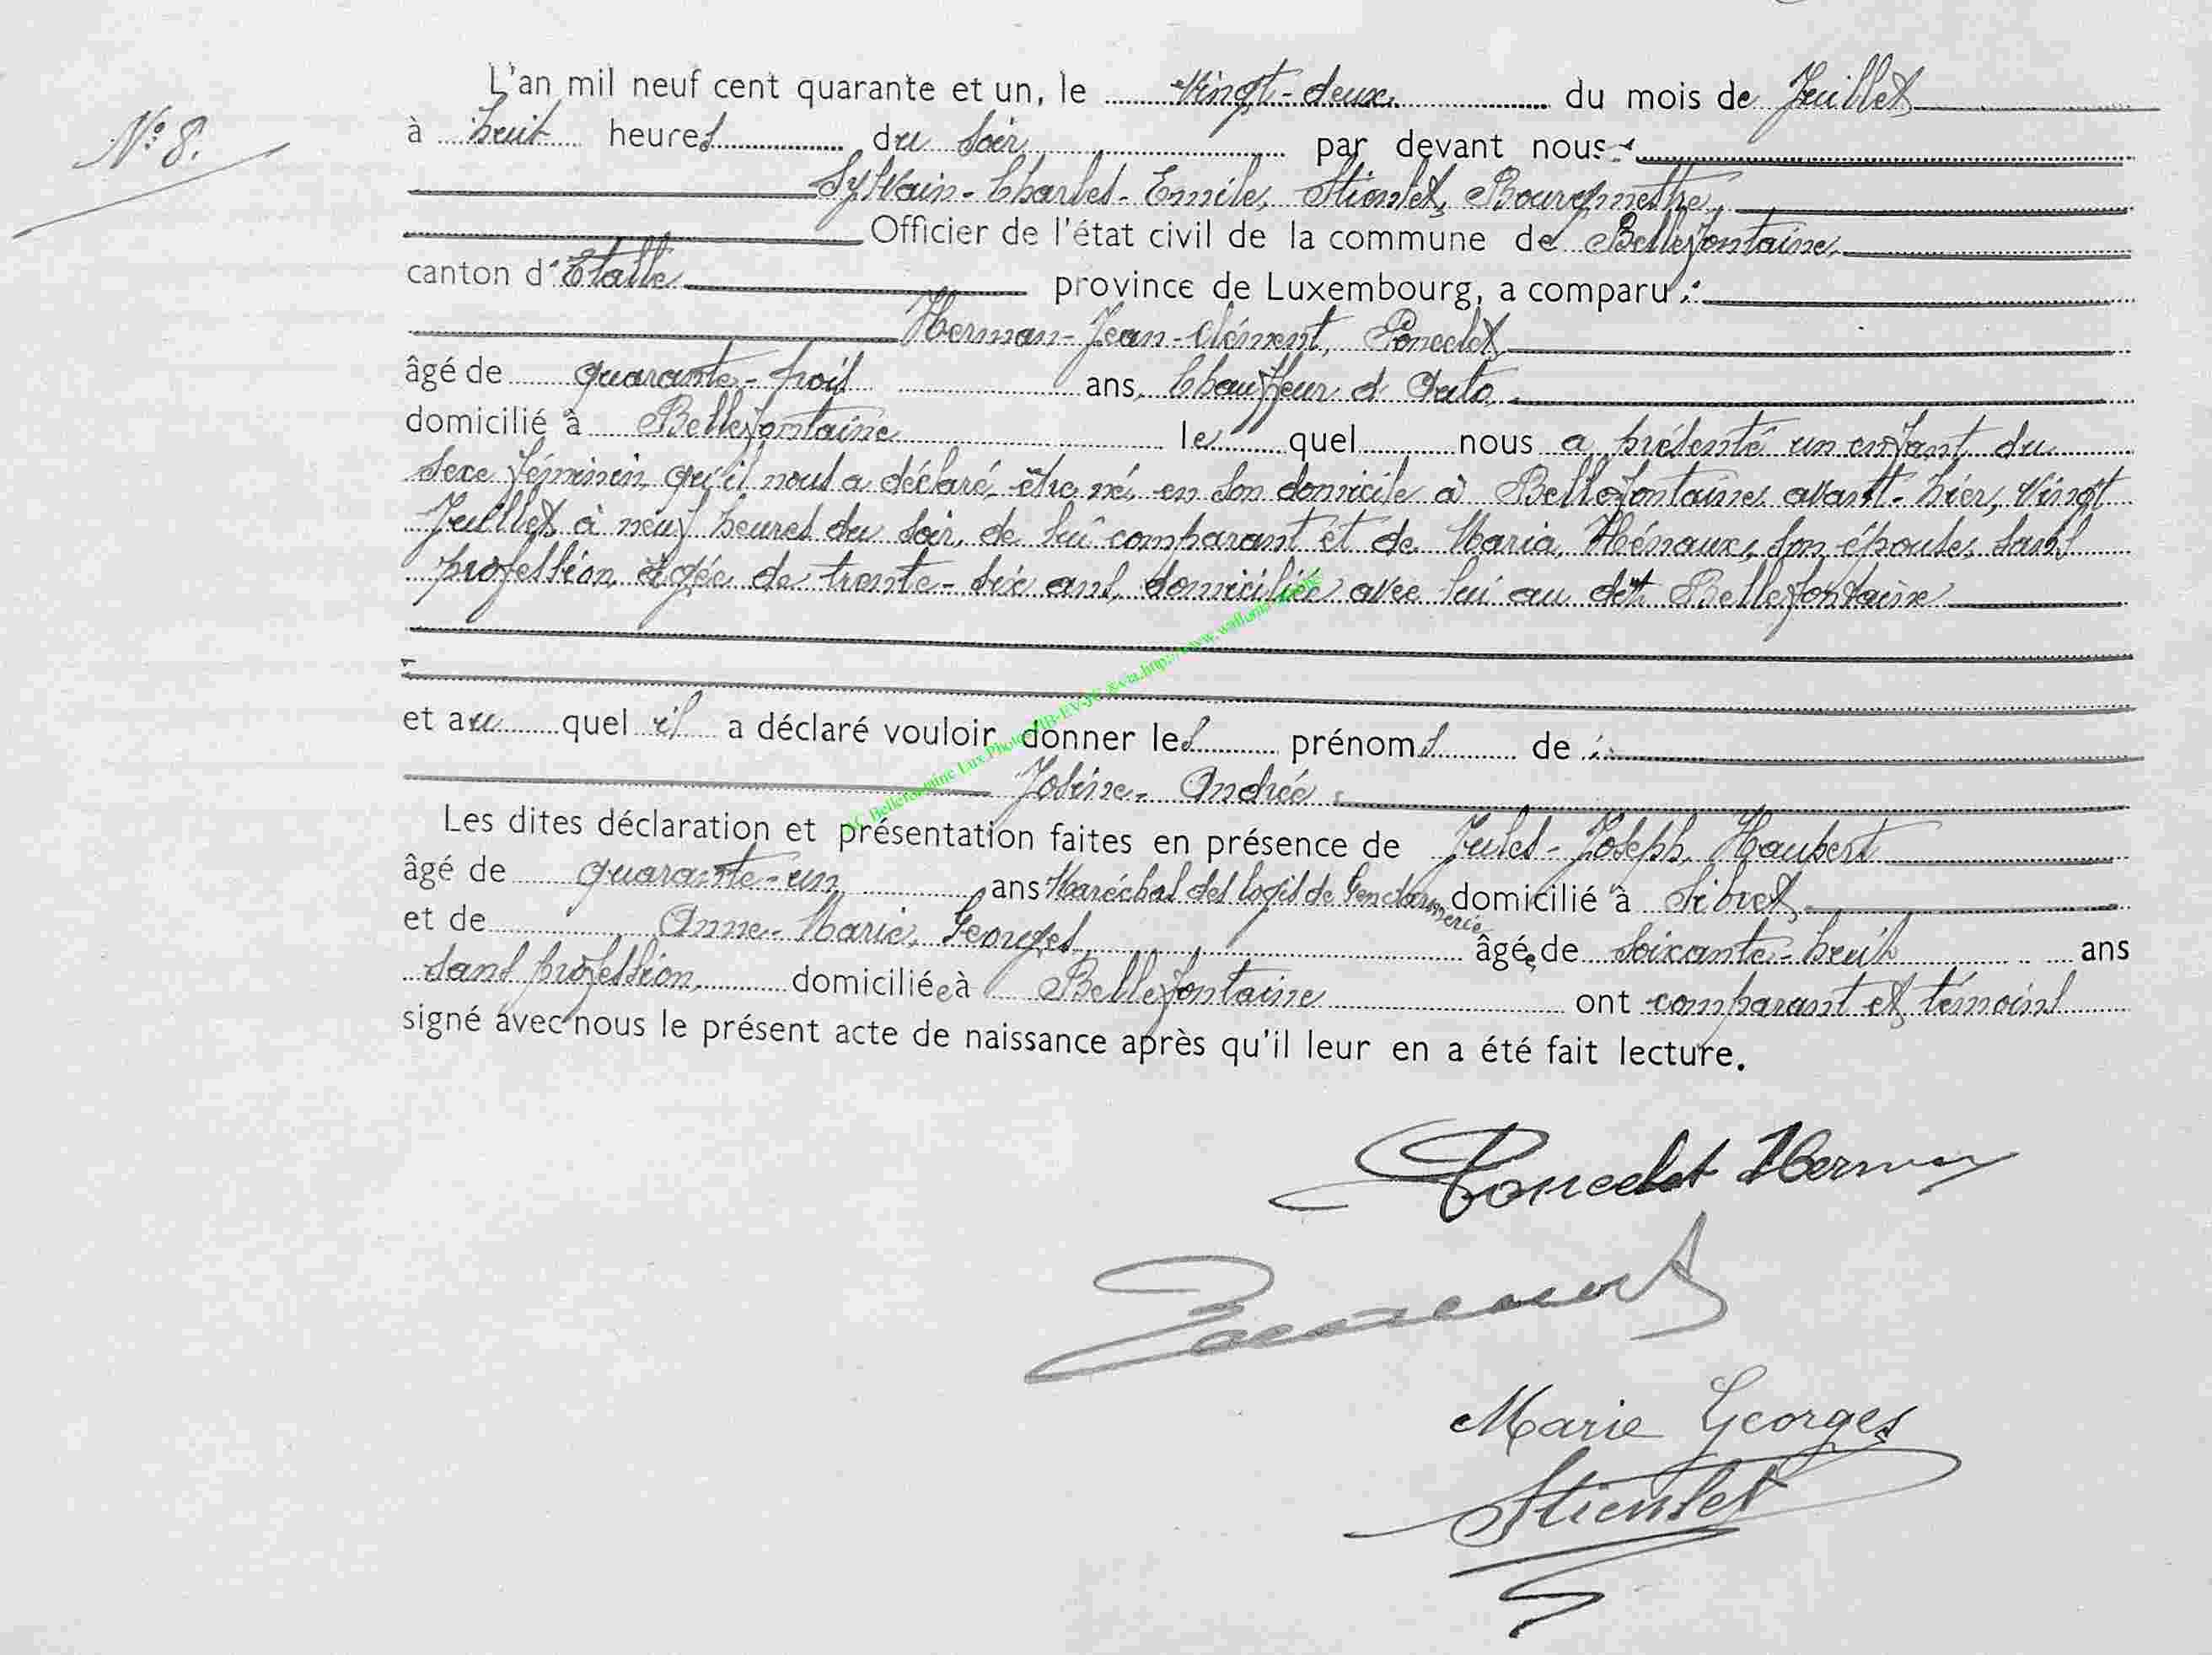 N° 8.
L'an mil neuf cent quarante et un, le vingt-deux du mois de Juillet
à huit heures du soir par devant nous
Sylvain-Charles-Emile, Stienlet, Bourgmestre,
Officier de l'état civil de la commune de Bellefontaine,
canton d'Etalle province de Luxembourg, a comparu :
Herman-Jean-Clément, Poncelet,
âgé de quarante-trois ans, Chauffeur d'Auto,
domicilié à Bellefontaine lequel nous a présenté un enfant du
sexe féminin, qu'il nous a déclaré, être né, en son domicile à Bellefontaine, avant-hier, vingt
Juillet, à neuf heures du soir, de lui comparant et de Maria, Hénaux, son épouse, sans
profession, âgée de trente-six ans, domiciliée avec lui au dit Bellefontaine
et auquel il a déclaré vouloir donner les prénoms de :
Josine-Andrée
Les dites déclaration et présentation faites en présence de Jules-Joseph, Haubert
âgé de quarante-un ans Maréchal des logis de Gendarmerie domicilié à Sibret
et de Anne-Marie, Georges, âgée de soixante-huit ans
sans profession, domiciliée à Bellefontaine ont comparant et témoins
signé avec nous le présent acte de naissance après qu'il leur en a été fait lecture.
Poncelet Herman
Marie Georges
Stienlet